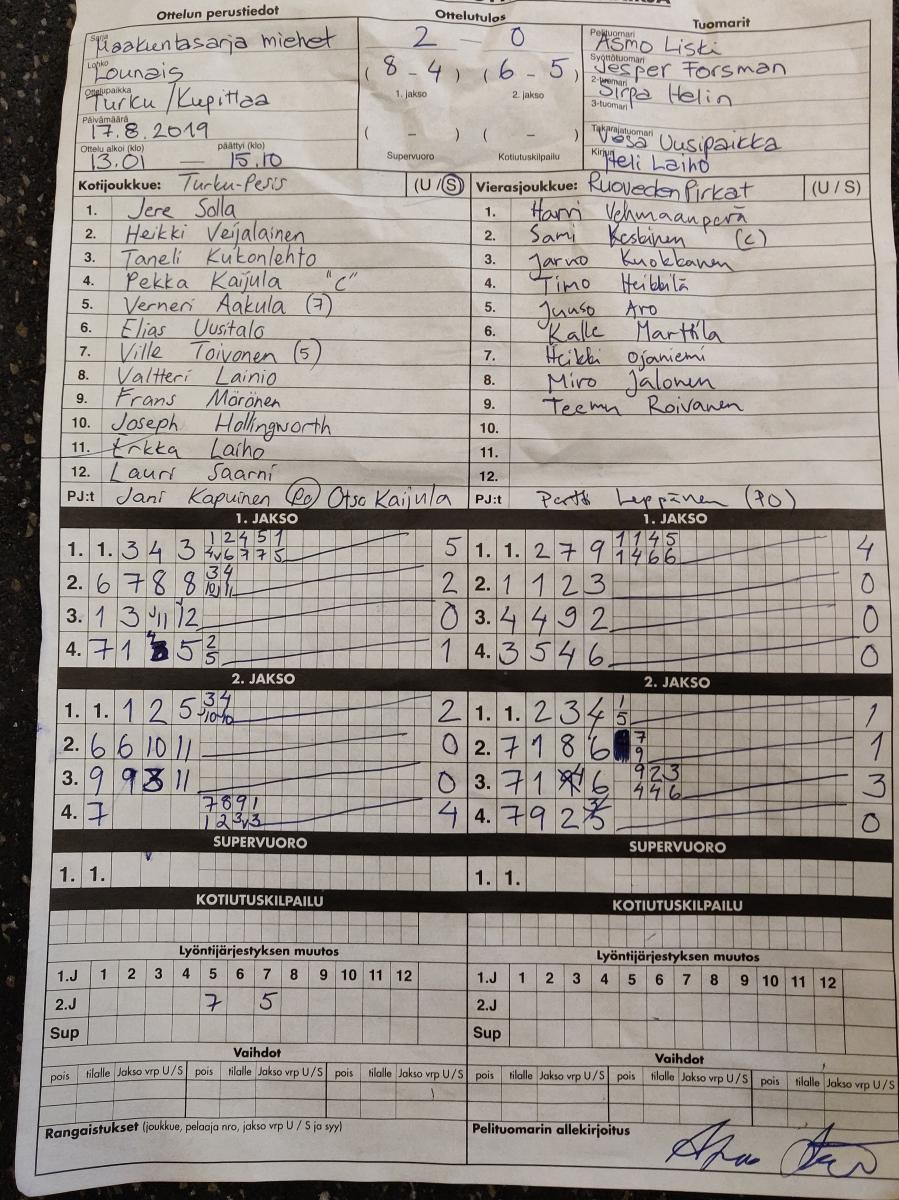 Ottelun perustiedot
Ottelutulos
Tuomarit
Sarja Maakuntasarja miehet
Lohko Lounais
Ottelupaikka Turku/Kupittaa
Päivämäärä 17.8.2019
Ottelu alkoi (klo) päättyi (klo)
13.01 — 15.10
2 — 0
(8 - 4) (6 - 5)
1. jakso 2. jakso
( - ) ( - )
Supervuoro Kotiutuskilpailu
Pelituomari Asmo Liski
Syöttötuomari Jesper Forsman
2-tuomari Sirpa Helin
3-tuomari
Takarajatuomari Vesa Uusipaikka
Kirjuri Heli Laiho
Kotijoukkue: Turku-Pesis (U/S)
1. Jere Solla
2. Heikki Veijalainen
3. Taneli Kukonlehto
4. Pekka Kaijula "C"
5. Verneri Aakula (7)
6. Elias Uusitalo
7. Ville Toivonen (5)
8. Valtteri Lainio
9. Frans Mörönen
10. Joseph Hollingworth
11. Erkka Laiho
12. Lauri Saarni
PJ:t Jani Kapuinen (PO) Otso Kaijula
Vierasjoukkue: Ruoveden Pirkat (U/S)
1. Harri Vehmaanperä
2. Sami Keskinen (C)
3. Jarno Kuokkanen
4. Timo Heikkilä
5. Juuso Aro
6. Kalle Marttila
7. Heikki Ojaniemi
8. Miro Jalonen
9. Teemu Roivanen
10.
11.
12.
PJ:t Pertti Leppänen (PO)
1. JAKSO
1. 1. 3 4 3 1 2 4 5 1 5
4v 6 7 7 5
2. 6 7 8 8 3 4 2
10 11
3. 1 3 11 12 0
4. 7 1 4 5 2 1
5
1. JAKSO
1. 1. 2 7 9 1 1 4 5 4
1 4 6 6
2. 1 1 2 3 0
3. 4 4 9 2 0
4. 3 5 4 6 0
2. JAKSO
1. 1. 1 2 5 3 4 2
10 10
2. 6 6 10 11 0
3. 9 9 8 11 0
4. 7 7 8 9 1 4
1 2 3v 3
2. JAKSO
1. 1. 2 3 4 1 1
5
2. 7 1 8 6 7 1
9
3. 7 1 4 6 9 2 3 3
4 4 6
4. 7 9 2 3 0
SUPERVUORO
1. 1.
SUPERVUORO
1. 1.
KOTIUTUSKILPAILU
KOTIUTUSKILPAILU
Lyöntijärjestyksen muutos
1.J 1 2 3 4 5 6 7 8 9 10 11 12
2.J 7 5
Sup
Lyöntijärjestyksen muutos
1.J 1 2 3 4 5 6 7 8 9 10 11 12
2.J
Sup
Vaihdot
pois tilalle Jakso vrp U/S pois tilalle Jakso vrp U/S pois tilalle Jakso vrp U/S
Vaihdot
pois tilalle Jakso vrp U/S pois tilalle Jakso vrp U/S pois tilalle Jakso vrp U/S
Rangaistukset (joukkue, pelaaja nro, jakso vrp U / S ja syy)
Pelituomarin allekirjoitus